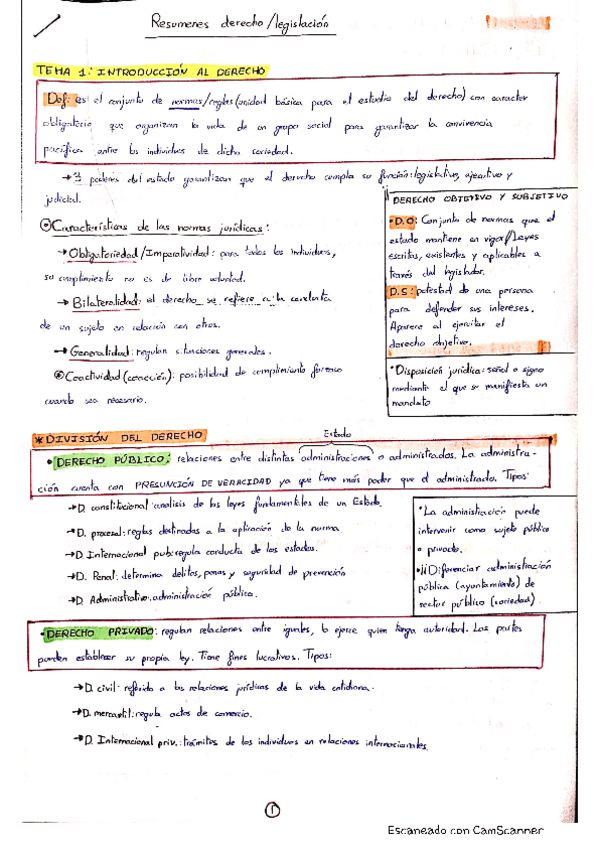 Resumenes derecho/legislación
TEMA 1: INTRODUCCIÓN AL DERECHO
Def: es el conjunto de normas/reglas (unidad básica para el estudio del derecho) con caracter
obligatorio que organizan la vida de un grupo social para garantizar la convivencia
pacífica entre los individuos de dicha sociedad.
→ 3 poderes del estado garantizan que el derecho cumpla su función: legislativo, ejecutivo y
judicial.
Características de las normas jurídicas:
→ Obligatoriedad/Imperatividad: para todos los individuos,
su cumplimiento no es de libre voluntad.
→ Bilateralidad: el derecho se refiere a la conducta
de un sujeto en relación con otros.
→ Generalidad: regulan situaciones generales.
Coactividad (coacción): posibilidad de cumplimiento forzoso
cuando sea necesario.
DERECHO OBJETIVO Y SUBJETIVO
• D.O: Conjunto de normas que el
estado mantiene en vigor/Leyes
escritas, existentes y aplicables a
través del legislador.
D.S: potestad de una persona
para defender sus intereses.
Aparece al ejercitar el
derecho objetivo.
• Disposición jurídica: señal o signo
mediante el que se manifiesta un
mandato
* DIVISIÓN DEL DERECHO
Estado
• DERECHO PÚBLICO: relaciones entre distintas administraciones o administrados. La administra-
ción cuenta con PRESUNCIÓN DE VERACIDAD ya que tiene más poder que el administrado. Tipos:
→ D. constitucional: analisis de las leyes fundamentales de un Estado.
→ D. procesal: reglas destinadas a la aplicación de la norma
→ D. Internacional pub: regula conducta de los estados.
→ D. Penal: determina delitos, penas y seguridad de prevención
→ D. Administrativo: administración pública.
• La administración puede
intervenir como sujeto público
o privado.
• ¡¡Diferenciar administración
pública (ayuntamiento) de
sector público (sociedad).
• DERECHO PRIVADO: regulan relaciones entre iguales, lo ejerce quien tenga autoridad. Las partes
pueden establecer su propia ley. Tiene fines lucrativos. Tipos:
→ D. civil: referido a las relaciones jurídicas de la vida cotidiana.
→ D. mercantil: regula actos de comercio.
→ D. Internacional priv.: trámites de los individuos en relaciones internacionales.
1
Escaneado con CamScanner